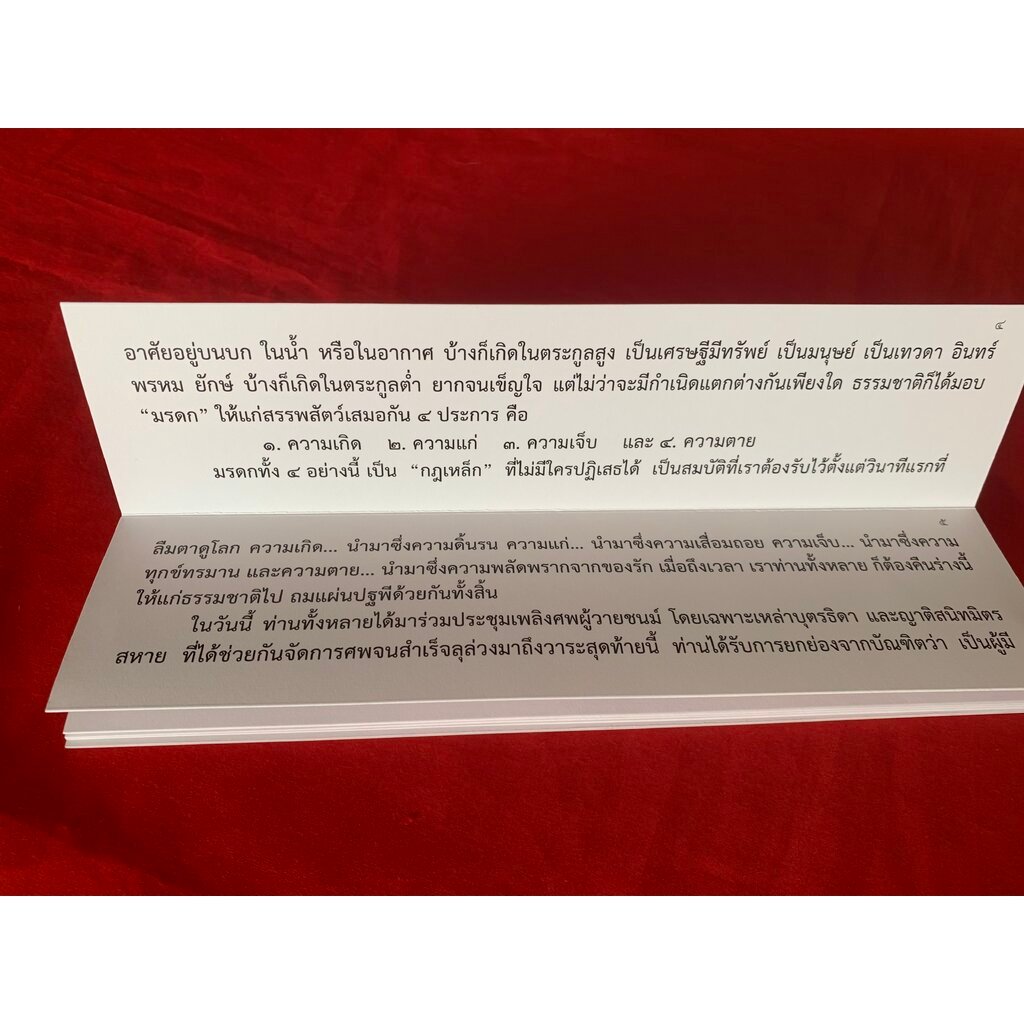 ๔
อาศัยอยู่บนบก ในน้ำ หรือในอากาศ บ้างก็เกิดในตระกูลสูง เป็นเศรษฐีมีทรัพย์ เป็นมนุษย์ เป็นเทวดา อินทร์
พรหม ยักษ์ บ้างก็เกิดในตระกูลต่ำ ยากจนเข็ญใจ แต่ไม่ว่าจะมีกำเนิดแตกต่างกันเพียงใด ธรรมชาติก็ได้มอบ
“มรดก” ให้แก่สรรพสัตว์เสมอกัน ๔ ประการ คือ
๑. ความเกิด ๒. ความแก่ ๓. ความเจ็บ และ ๔. ความตาย
มรดกทั้ง ๔ อย่างนี้ เป็น “กฎเหล็ก” ที่ไม่มีใครปฏิเสธได้ เป็นสมบัติที่เราต้องรับไว้ตั้งแต่วินาทีแรกที่
๕
ลืมตาดูโลก ความเกิด... นำมาซึ่งความดิ้นรน ความแก่... นำมาซึ่งความเสื่อมถอย ความเจ็บ... นำมาซึ่งความ
ทุกข์ทรมาน และความตาย... นำมาซึ่งความพลัดพรากจากของรัก เมื่อถึงเวลา เราท่านทั้งหลาย ก็ต้องคืนร่างนี้
ให้แก่ธรรมชาติไป ถมแผ่นปฐพีด้วยกันทั้งสิ้น
ในวันนี้ ท่านทั้งหลายได้มาร่วมประชุมเพลิงศพผู้วายชนม์ โดยเฉพาะเหล่าบุตรธิดา และญาติสนิทมิตร
สหาย ที่ได้ช่วยกันจัดการศพจนสำเร็จลุล่วงมาถึงวาระสุดท้ายนี้ ท่านได้รับการยกย่องจากบัณฑิตว่า เป็นผู้มี